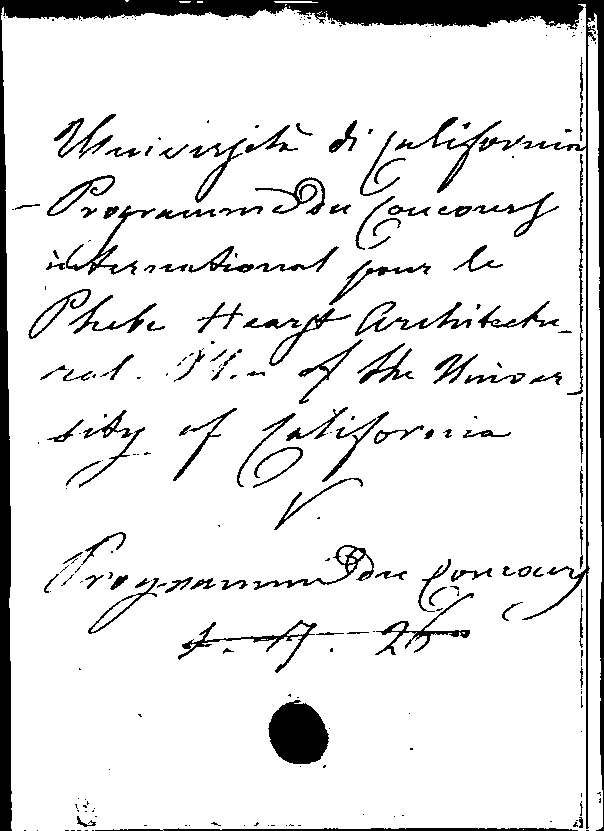 Università di California
- Programme du Concours
international pour le
Phebe Hearst Architectu-
ral. Plan of the Univer-
sity of California
V.
Programme du Concours
4. 17. 26